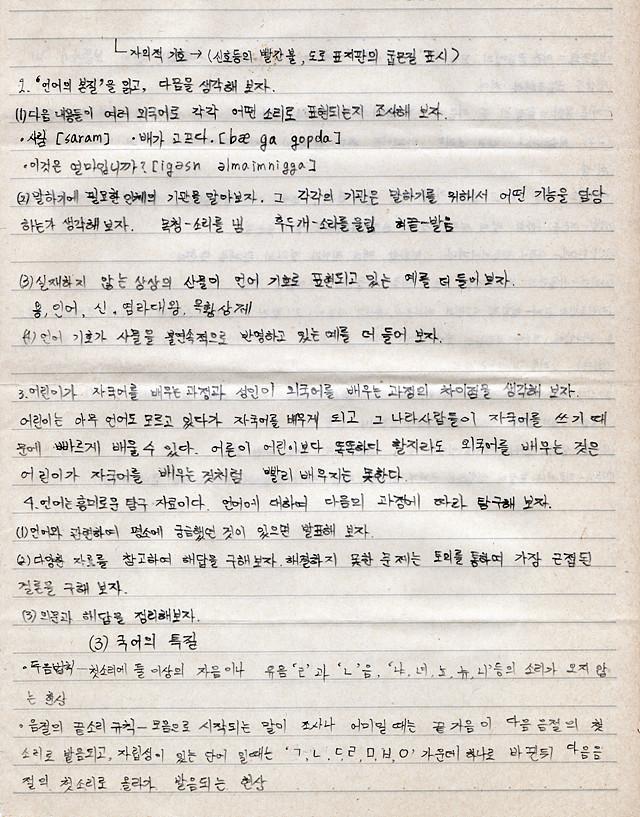 └ 자의적 기호 → (신호등의 빨간불, 도로 표지판의 굽은길 표시)
2. '언어의 본질'을 읽고, 다음을 생각해 보자.
(1) 다음 내용들이 여러 외국어로 각각 어떤 소리로 표현되는지 조사해 보자.
·사람 [saram] ·배가 고프다. [bæ ga gopda]
·이것은 얼마입니까? [igəsn əlmaimnigga]
(2) 말하기에 필요한 인체의 기관을 알아보자. 그 각각의 기관은 말하기를 위해서 어떤 기능을 담당
하는가 생각해 보자. 목청-소리를 냄 후두개-소리를 울림 혀끝-발음
(3) 실재하지 않는 상상의 산물이 언어 기호로 표현되고 있는 예를 더 들어 보자.
용, 인어, 신, 염라대왕, 옥황상제
(4) 언어 기호가 사물을 불연속적으로 반영하고 있는 예를 더 들어 보자.
3. 어린이가 자국어를 배우는 과정과 성인이 외국어를 배우는 과정의 차이점을 생각해 보자.
어린이는 아무 언어도 모르고 있다가 자국어를 배우게 되고 그 나라사람들이 자국어를 쓰기 때
문에 빠르게 배울 수 있다. 어른이 어린이보다 똑똑하다 할지라도 외국어를 배우는 것은
어린이가 자국어를 배우는 것처럼 빨리 배우지는 못한다.
4. 언어는 흥미로운 탐구 자료이다. 언어에 대하여 다음의 과정에 따라 탐구해 보자.
(1) 언어와 관련하여 평소에 궁금했던 것이 있으면 발표해 보자.
(2) 다양한 자료를 참고하여 해답을 구해보자. 해결하지 못한 문제는 토의를 통하여 가장 근접된
결론을 구해 보자.
(3) 의문과 해답을 정리해보자.
(3) 국어의 특질
·두음법칙-첫소리에 둘 이상의 자음이나 유음 'ㄹ'과 'ㄴ'음, '냐, 녀, 뇨, 뉴, 니'등의 소리가 오지 않
는 현상
·음절의 끝소리 규칙-모음으로 시작되는 말이 조사나 어미일 때는 끝 자음이 다음 음절의 첫
소리로 발음되고, 자립성이 있는 단어일때는 'ㄱ, ㄴ, ㄷ, ㄹ, ㅁ, ㅂ, ㅇ' 가운데 하나로 바뀐뒤 다음음
절의 첫소리로 올라가 발음되는 현상